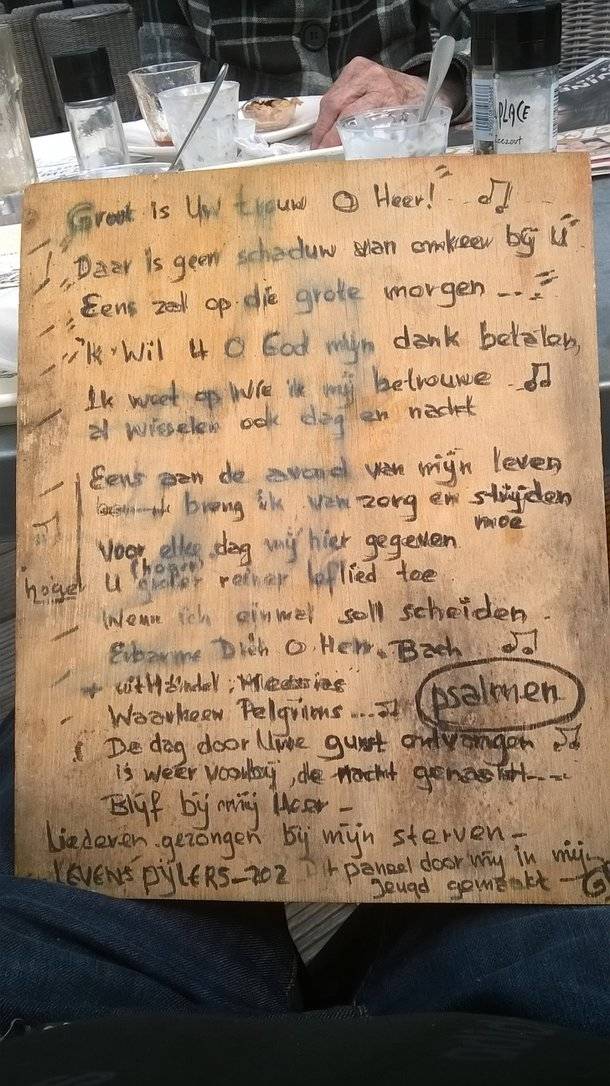 PLACE
Zeezout
"Groot is Uw trouw O Heer!"
"Daar is geen schaduw van omkeer bij U"
"Eens zal op die grote morgen ---"
"'k Wil U O God mijn dank betalen,
Ik weet op Wie ik mij betrouwe
al wisselen ook dag en nacht
Eens aan de avond van mijn leven
breng ik van zorg en strijden
moe
Voor elke dag mij hier gegeven
(hoger)
U reiner loflied toe
hoger
Wenn ich einmal soll scheiden
Erbarme Dich O Herr. Bach
+ uit Händel, Messias
Waarheen Pelgrims ....
psalmen
De dag door Uwe gunst ontvangen
is weer voorbij, de nacht genaakt---
Blijf bij mij Heer -
Liederen gezongen bij mijn sterven -
LEVENS PIJLERS - 202 Dit paneel door mij in mijn
Jeugd gemaakt -